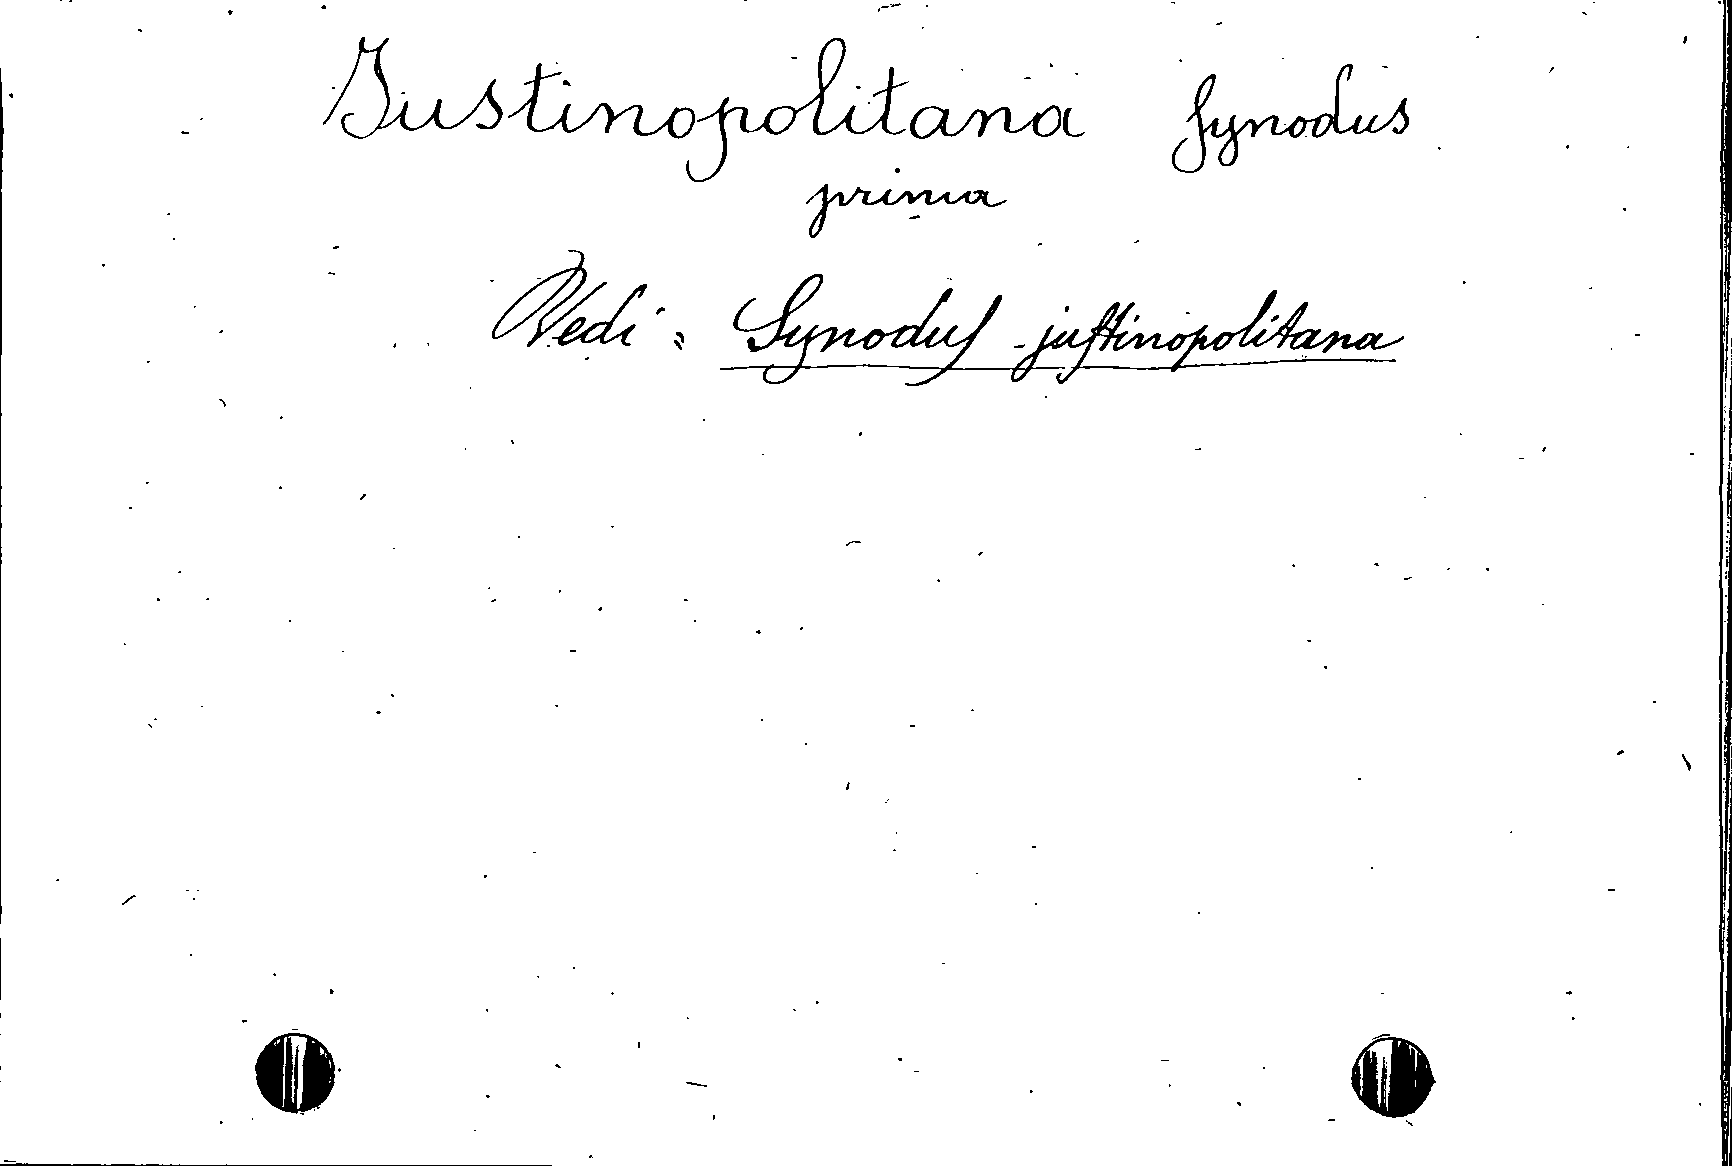 Justinopolitana Synodus
prima
Vedi: Synodus justinopolitana